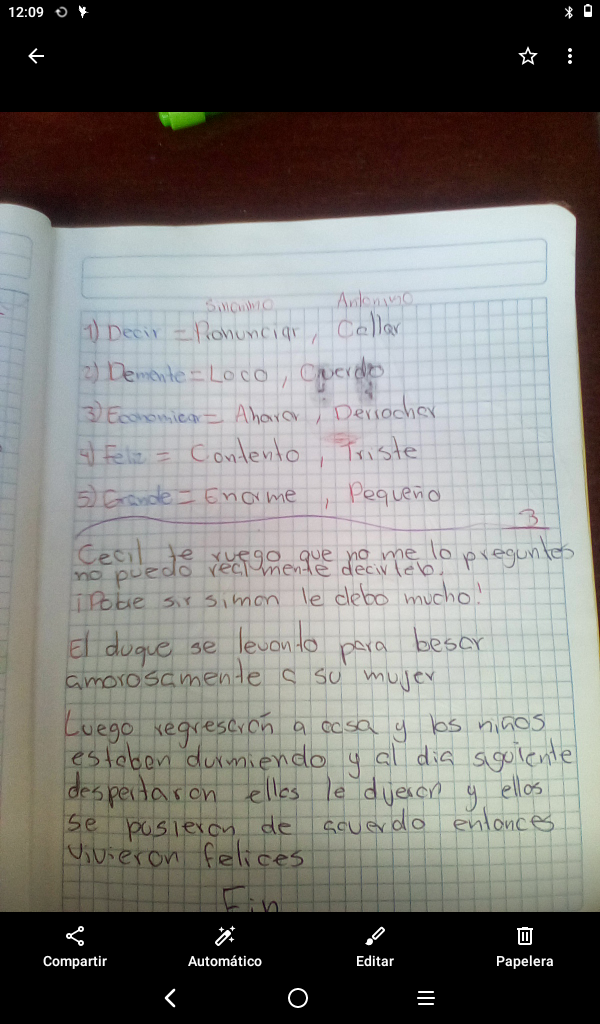 12:09
Sinonimo Antonimo
1) Decir = Ronunciar, Callar
2) Demente = Loco, Cuerdo
3) Economicar = Aharar, Derrochar
4) Feliz = Contento, Triste
5) Grande = Enorme, Pequeño
3
Cecil te ruego que no me lo preguntes
no puedo realmente decirtelo.
¡Pobre sir simon le debo mucho!
El duque se levanto para besar
amorosamente a su mujer
Luego regresarón a casa y los niños
estaban durmiendo y al dia siguiente
despertaron ellos le dijeron y ellos
se pusieron de acuerdo entonces
vivieron felices
Fin
Compartir Automático Editar Papelera